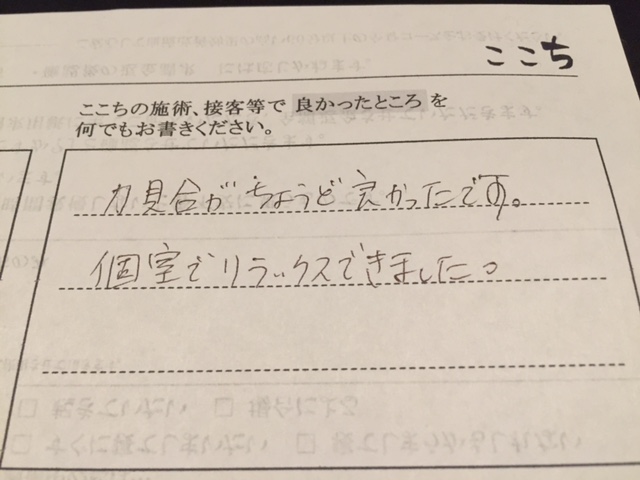 ここち
ここちの施術、接客等で 良かったところ を
何でもお書きください。
力具合がちょうど良かったです。
個室でリラックスできました。